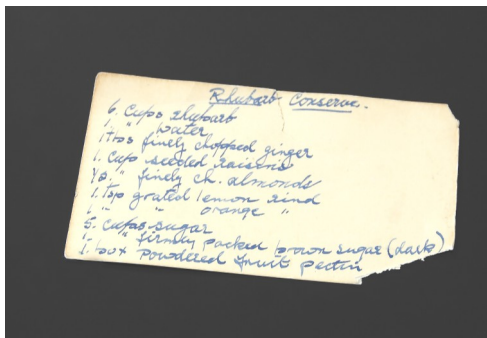 Rhubarb Conserve.
6. Cups rhubarb
1. " water
1 tbs finely chopped ginger
1. Cup seeded raisons
1/2. " finely ch. almonds
1. tsp grated lemon rind
1 " " orange "
5. cups sugar
1- " firmly packed brown sugar (dark)
1. box powdered fruit pectin